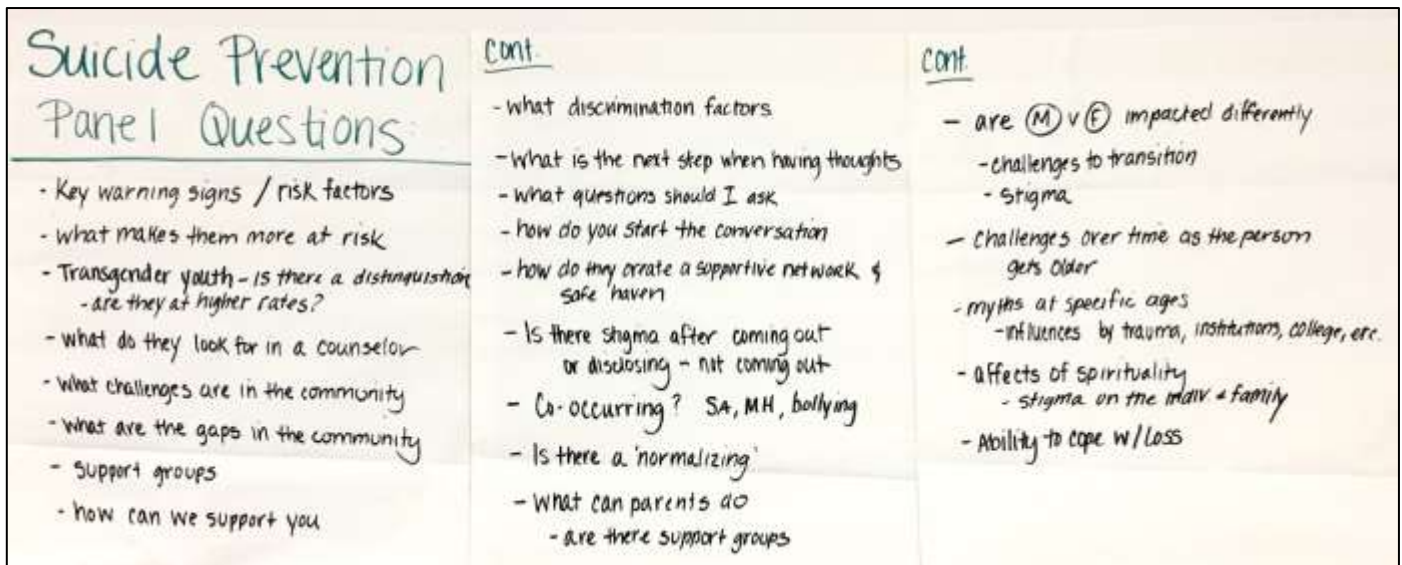 Suicide Prevention
Panel Questions:
- Key warning signs / risk factors
- what makes them more at risk
- Transgender youth - is there a distinguistion
- are they at higher rates?
- what do they look for in a counselor
- What challenges are in the community
- what are the gaps in the community
- Support groups
- how can we support you
cont.
- what discrimination factors
- What is the next step when having thoughts
- what questions should I ask
- how do you start the conversation
- how do they create a supportive network &
safe haven
- Is there stigma after coming out
or disclosing - not coming out
- Co-occurring? SA, MH, bollying
- Is there a 'normalizing'
- What can parents do
- are there support groups
cont.
- are M v F impacted differently
- challenges to transition
- Stigma
- Challenges over time as the person
gets older
- myths at specific ages
- influences by trauma, institutions, college, etc.
- affects of spirituality
- stigma on the indiv & family
- Ability to cope w/ Loss